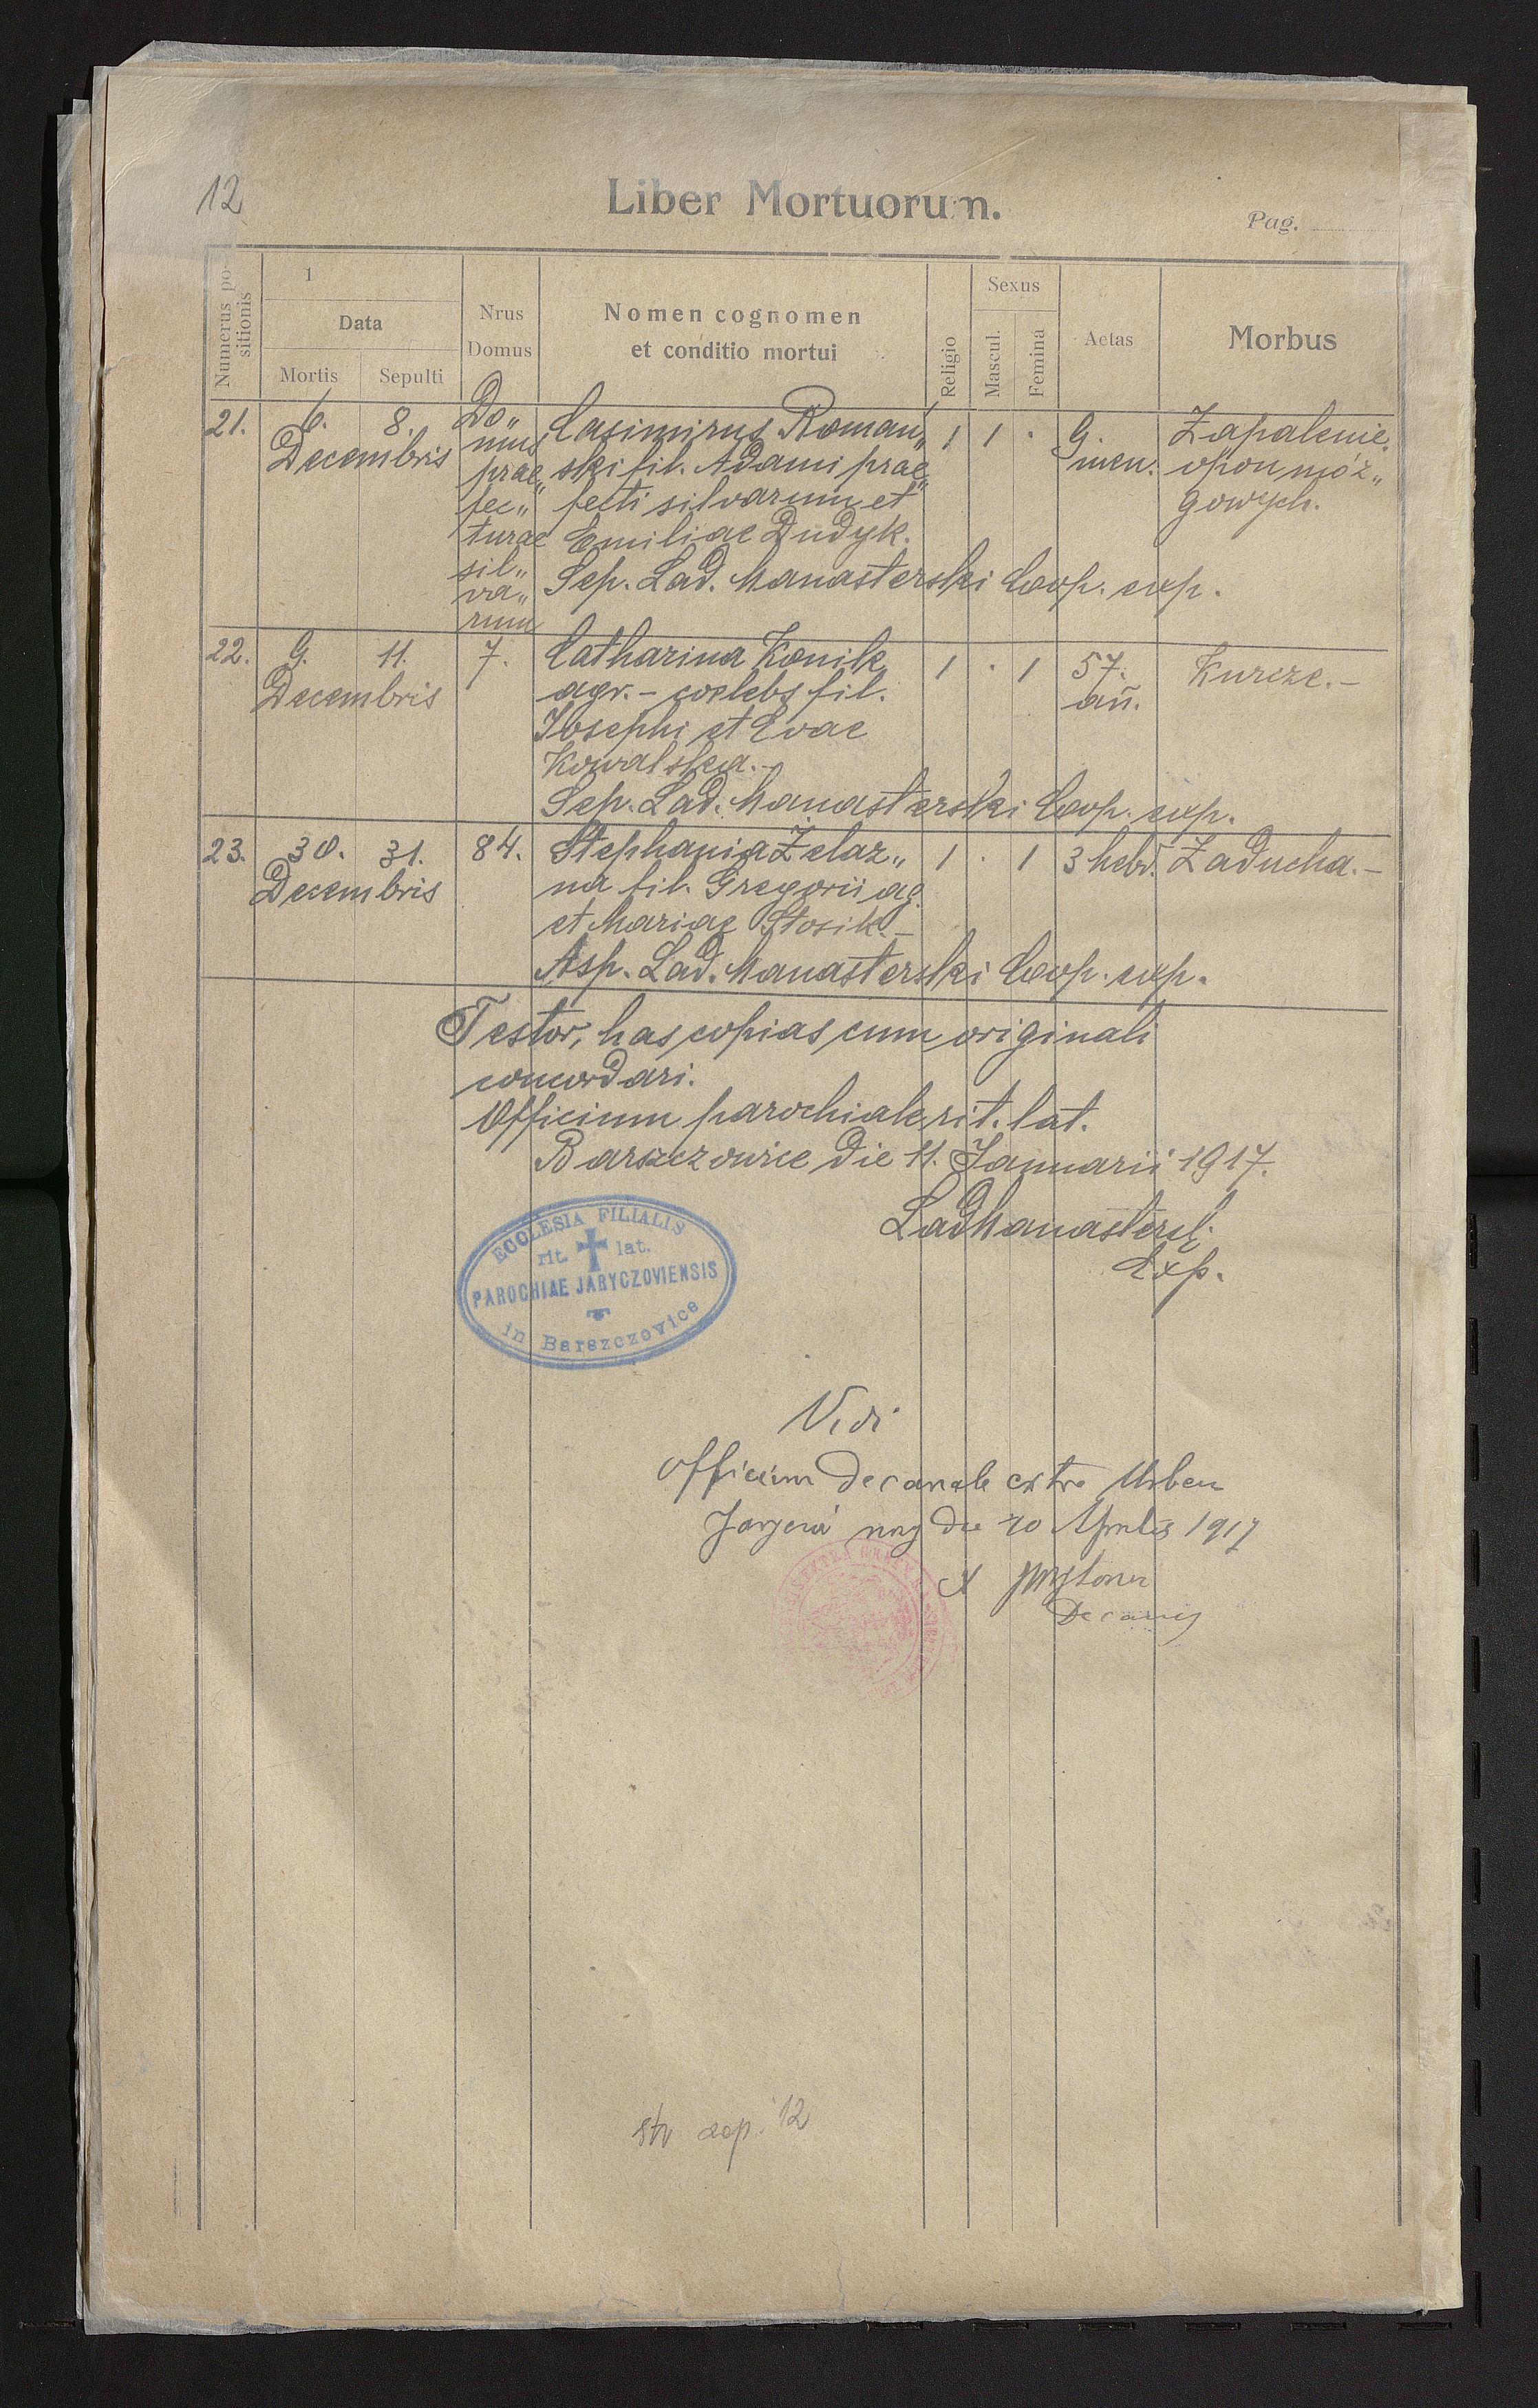 12
Liber Mortuorum.
Pag.
Numerus positionis
1
Data
Mortis
Sepulti
Nrus
Domus
Nomen cognomen
et conditio mortui
Religio
Sexus
Mascul.
Femina
Aetas
Morbus
21. 6. 8. Do„ Casimirus Roman„ 1 1 · 9. Zapalenie
Decembris mus ski fil. Adami prae„ men. opon móz„
prae„ fecti silvarum et gowych.
fec„ Emiliae Dudyk.
turae
sil„ Sep. Lad. Manasterski Coop. exp.
va„
rum
22. 9. 11. 7. Catharina Konik 1 · 1 57. Kurcze.-
Decembris agr. - coelebs fil. añ.
Josephi et Evae
Kowalska.-
Sep. Lad. Manasterski Coop. exp.
23. 30. 31. 84. Stephania Żelaz„ 1 · 1 3 hebd. Zaducha.-
Decembris na fil. Gregorii ag.
et Mariae Stosik.-
Asp. Lad. Manasterski Coop. exp.
Testor, has copias cum originali
concordari.
Officium parochiale rit. lat.
Barszczowice die 11. Januarii 1917.
Lad Manasterski
Exp.
ECCLESIA FILIALIS
rit. lat.
PAROCHIAE JARYCZOVIENSIS
in Barszczovice
Vidi
Officium Decanale extra Urbem
die 20 Aprilis 1917
Decanus
12